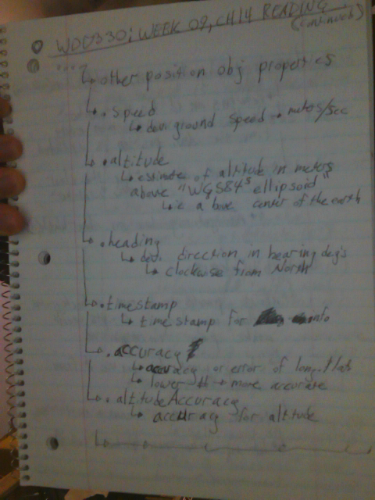 WDD330: WEEK 09, CH14 READING
(continued)
other position obj properties
.speed
dev. ground speed → meters/sec
.altitude
estimate of altitude in meters
above "WGS84" ellipsoid
above center of the earth
.heading
dev. direction in bearing deg's
clockwise from North
.timestamp
timestamp for info
.accuracy
accuracy or error of long./lat
lower → more accurate
.altitudeAccuracy
accuracy for altitude